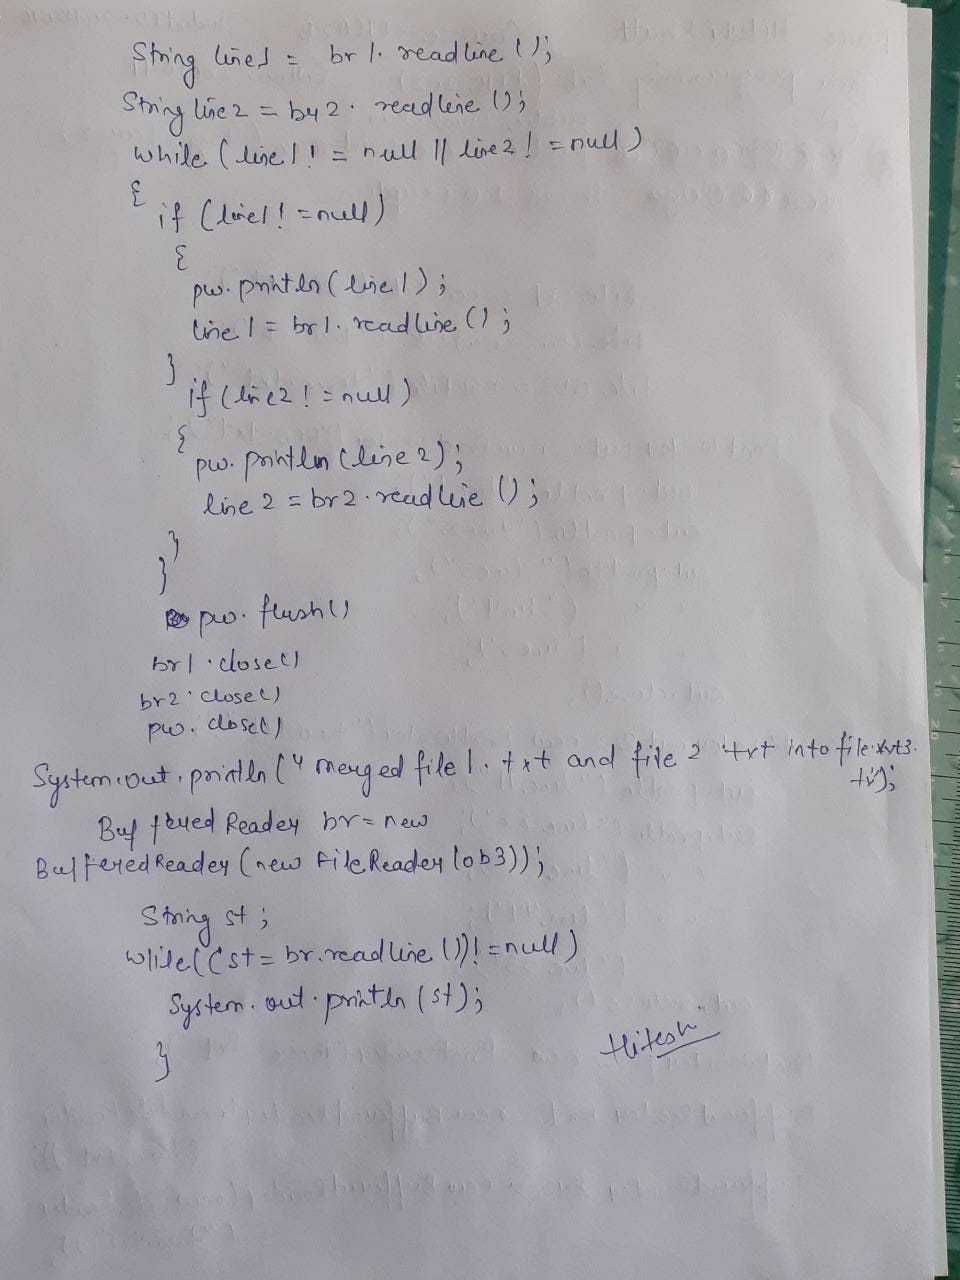 String line1 = br1. readline ();
String line2 = br2. readline ();
while (line1! = null || line2! = null)
{
if (line1! = null)
{
pw. println (line1);
line1 = br1. readline ();
}
if (line2! = null)
{
pw. println (line2);
line 2 = br2. readline ();
}
}
pw. flush()
br1. close()
br2. close()
pw. close()
System.out.println (" merged file1. txt and file2 txt into file
Buffered Reader br = new
BufferedReader (new FileReader (ob3));
String st ;
while((st = br.readline ())! = null)
System. out. println (st);
}
Hitesh